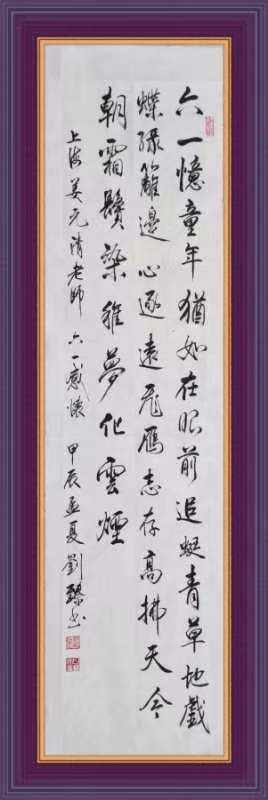 六一憶童年猶如在眼前追蜓青草地戲
蝶綠籬邊心逐遠飛雁志存高拂天今
朝霜鬢染稚夢化雲煙
上海姜元清老師六一感懷甲辰孟夏劉書